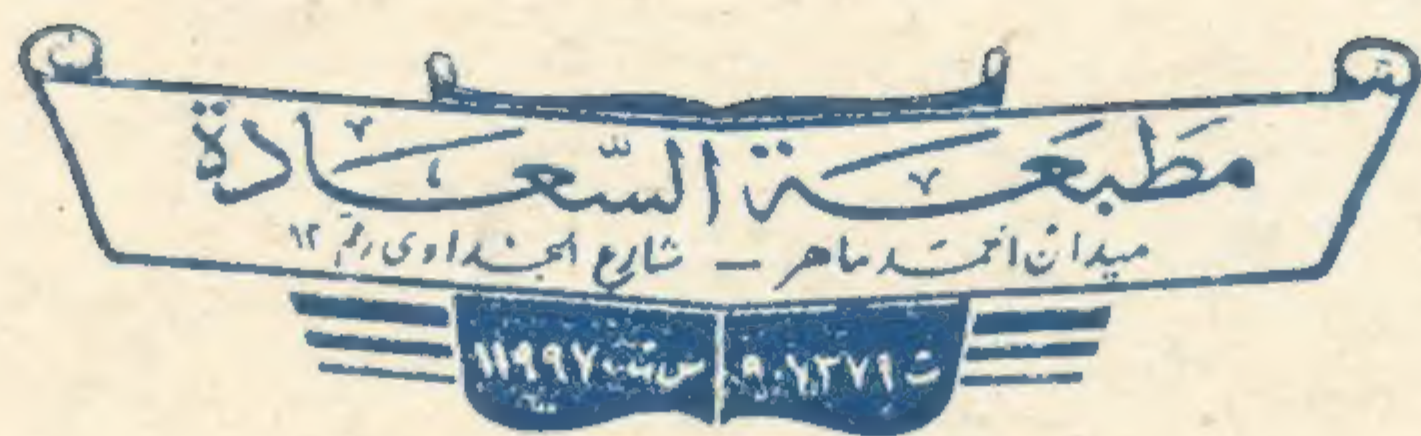 مطبعة السعادة
ميدان احمد ماهر — شارع الجداوى رقم ١٢
ت ٩٠٧٣٧١ س.ت ١١٩٩٧٠